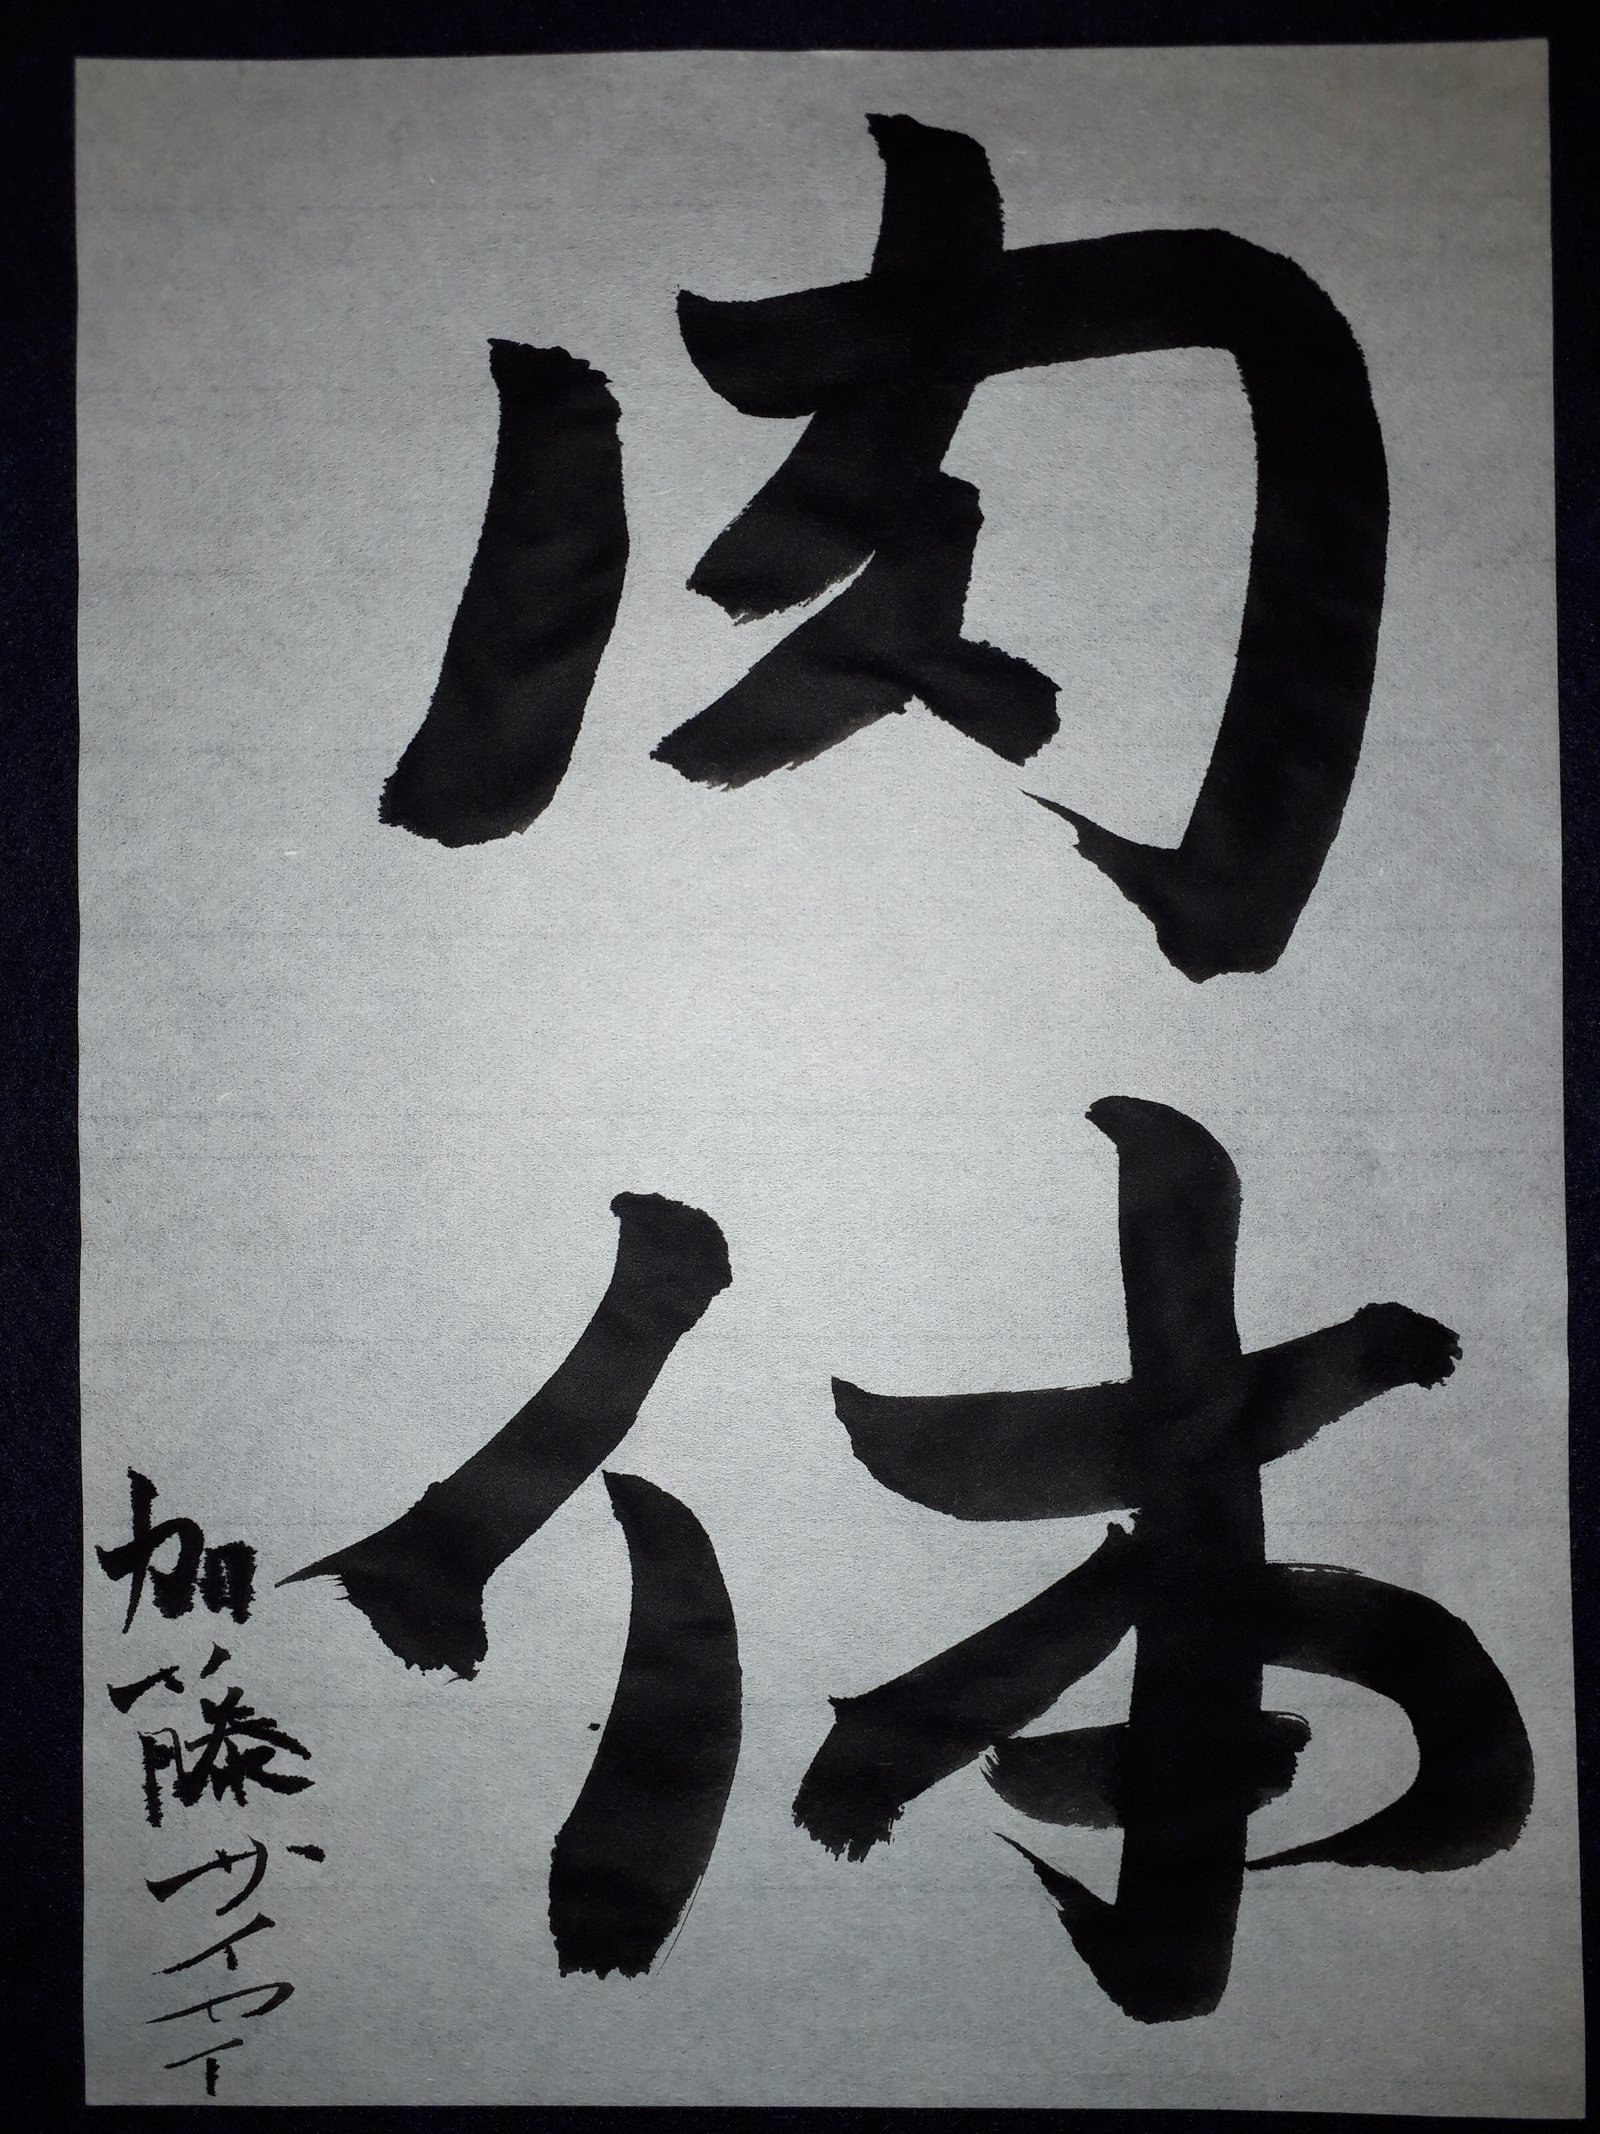 肉体
加藤サイヤイ